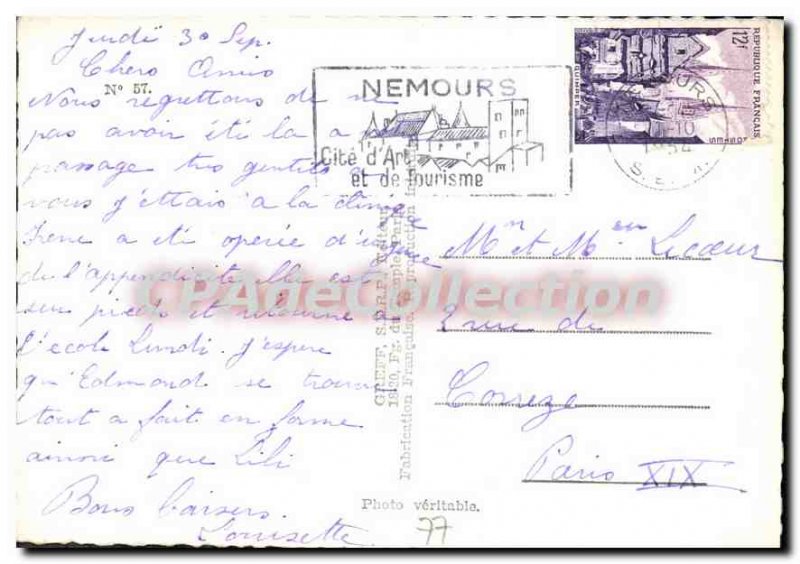 Jeudi 30 Sep.
Chers Amis
N° 57.
Nous regrettons de ne
pas avoir été la a
passage très gentils
vous j'étais a la clinique
Irene a été opérée d'urgence
de l'appendicite elle est
sur pieds et retourne a
l'école Lundi. j'espere
qu'Edmond se trouve
tout a fait en forme
ainsi que Lili
Bons baisers.
Louisette
NEMOURS
Cité d'Art
et de Tourisme
REPUBLIQUE FRANÇAISE
12f
QUIMPER
NEMOURS
-10
54
S. ET M.
GREFF, S.E.R.P., Editeur
18-20, Fg. du Temple, Paris
Fabrication Française. Reproduction interdite
Mr et Me Lecoeur
2 rue de
Correze
Paris XIX
CPAdeCollection
Photo véritable.
77